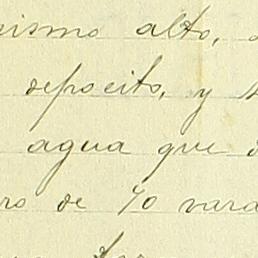 mismo alto,
deposito, y
agua que
ro de 70 vara